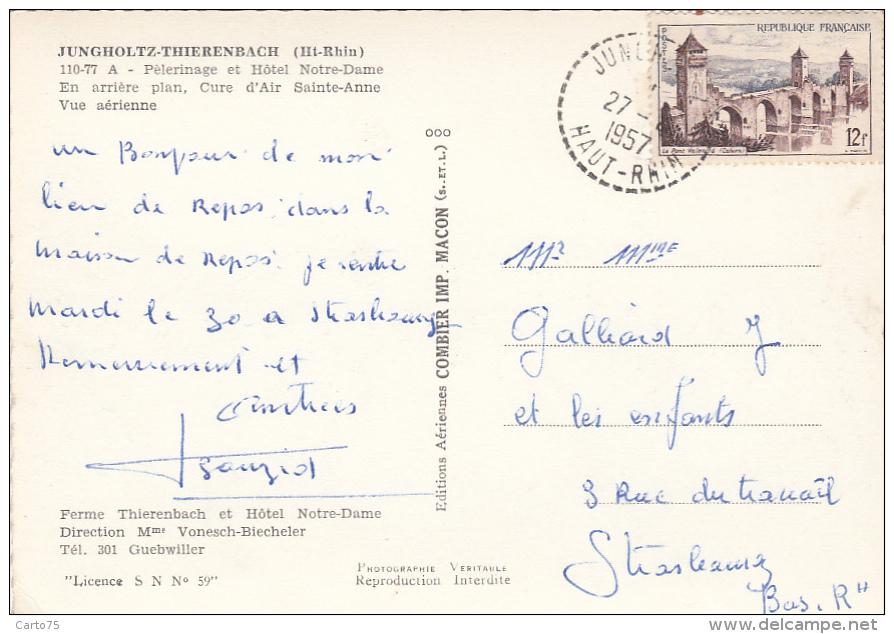 JUNGHOLTZ-THIERENBACH (Ht-Rhin)
110-77 A - Pèlerinage et Hôtel Notre-Dame
En arrière plan, Cure d'Air Sainte-Anne
Vue aérienne
un Bonjour de mon
lieu de Repos dans la
Maison de Repos je rentre
Mardi le 30 a Strasbourg
Remerciement et
Amitiées
Ferme Thierenbach et Hôtel Notre-Dame
Direction Mme Vonesch-Biecheler
Tél. 301 Guebwiller
"Licence S N No 59"
PHOTOGRAPHIE VERITABLE
Reproduction Interdite
Editions Aériennes COMBIER IMP. MACON (S.-ET-L.)
REPUBLIQUE FRANÇAISE
POSTES
12f
27 -
1957
HAUT-RHIN
Mr Mme
Galliard J
et les enfants
3 Rue du travaïl
Strasbourg
Bas. RH
Carto75
www.delcampe.net